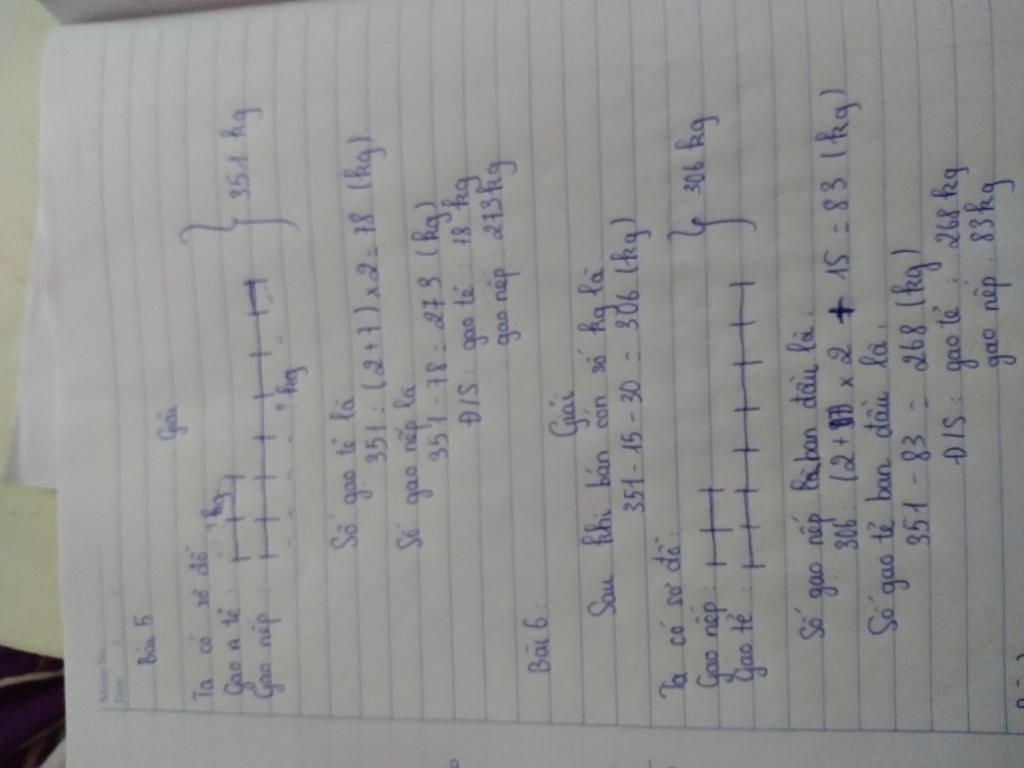 Bài 5
Giải
Ta có sơ đồ
? kg
Gạo n tẻ :
Gạo nếp :
351 kg
? kg
Số gạo tẻ là:
351 : (2+7) x 2 = 78 (kg)
Số gạo nếp là:
351 - 78 = 273 (kg)
Đ/S : gạo tẻ : 78 kg
gạo nếp : 273 kg
Bài 6 :
Giải
Sau khi bán còn số kg là :
351 - 15 - 30 = 306 (kg)
Ta có sơ đồ :
Gạo nếp :
Gạo tẻ :
306 kg
Số gạo nếp ban đầu là :
306 : (2 + x 2 + 15 = 83 (kg)
Số gạo tẻ ban đầu là :
351 - 83 = 268 (kg)
Đ/S : gạo tẻ : 268 kg
gạo nếp : 83 kg